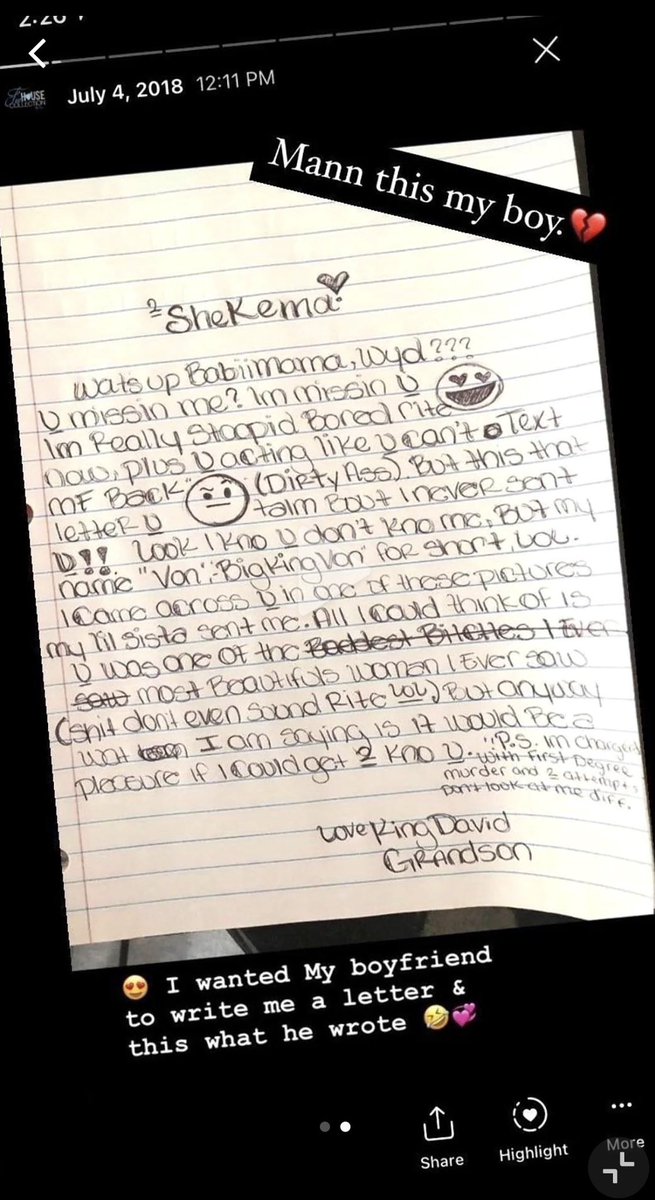 2:20
July 4, 2018 12:11 PM
HOUSE
COLLECTION
Mann this my boy.💔
2 Shekema.
Wats up Babiimama, Wyd???
U missin me? Im missin U
Im Really Stoopid Bored rite
now, plus U acting like U can't Text
MF Back (Dirty Ass). But this that
letter U talm Bout I never sent
U!! Look I kno U don't kno me, But my
name "Von". BigKingVon for short, LOL.
I came across U in one of these pictures
my lil sista sent me. All I could think of is
U was one of the Baddest Bitches I Ever
saw most Beautifuls woman I Ever saw
(shit dont even sound Rite LOL) But anyway
wat I am saying is it would Be a
pleasure if I could get 2 kno U.
"P.S. im charged
with First Degree
murder and 2 attempts
Dont look at me diff.
Love King David
Grandson
😍 I wanted My boyfriend
to write me a letter &
this what he wrote 🤣💞
Share
Highlight
More